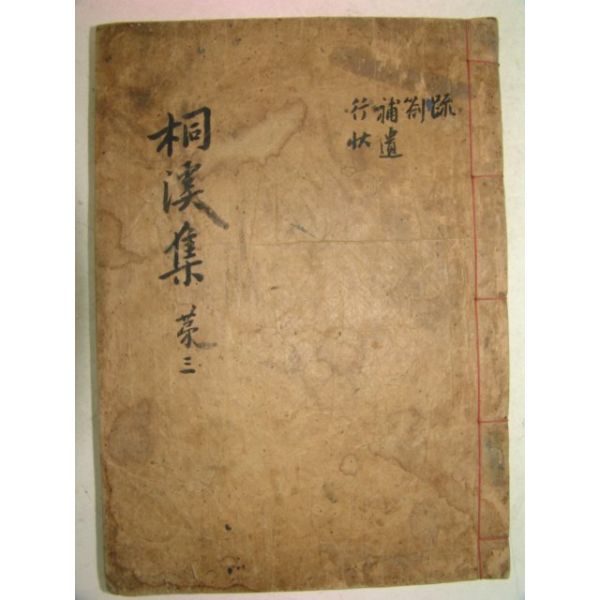 疏
劄
補遺
行狀
桐溪集 苐三